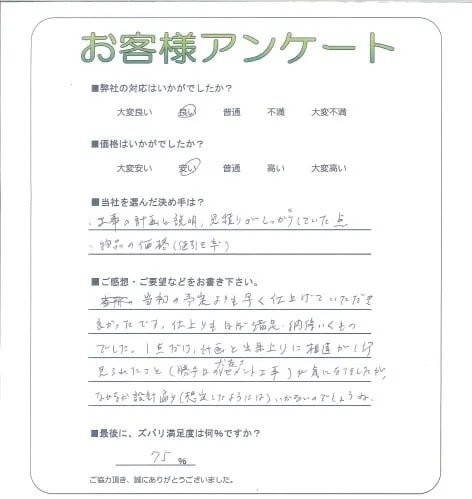 お客様アンケート
■弊社の対応はいかがでしたか？
大変良い 良い 普通 不満 大変不満
■価格はいかがでしたか？
大変安い 安い 普通 高い 大変高い
■当社を選んだ決め手は？
・工事の計画と説明，見積りがしっかりしていた点
・物品の価格（値引き率）
■ご感想・ご要望などをお書き下さい。
当初の予定よりも早く仕上げていただき
良かったです。仕上りもほぼ満足・納得いくもの
でした。1点だけ，計画と出来上りに相違が
見られたこと（勝手口 セメント工事）が気になりましたが，
なかなか設計通り（想定したようには）いかないのでしょうね。
■最後に、ズバリ満足度は何％ですか？
75 ％
ご協力頂き、誠にありがとうございました。